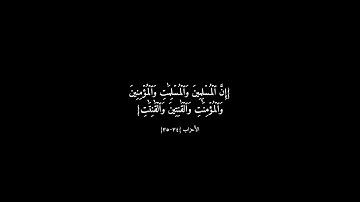 إِنَّ ٱلْمُسْلِمِينَ وَٱلْمُسْلِمَٰتِ وَٱلْمُؤْمِنِينَ
وَٱلْمُؤْمِنَٰتِ وَٱلْقَٰنِتِينَ وَٱلْقَٰنِتَٰتِ|
الأحزاب {٣٤-٣٥|